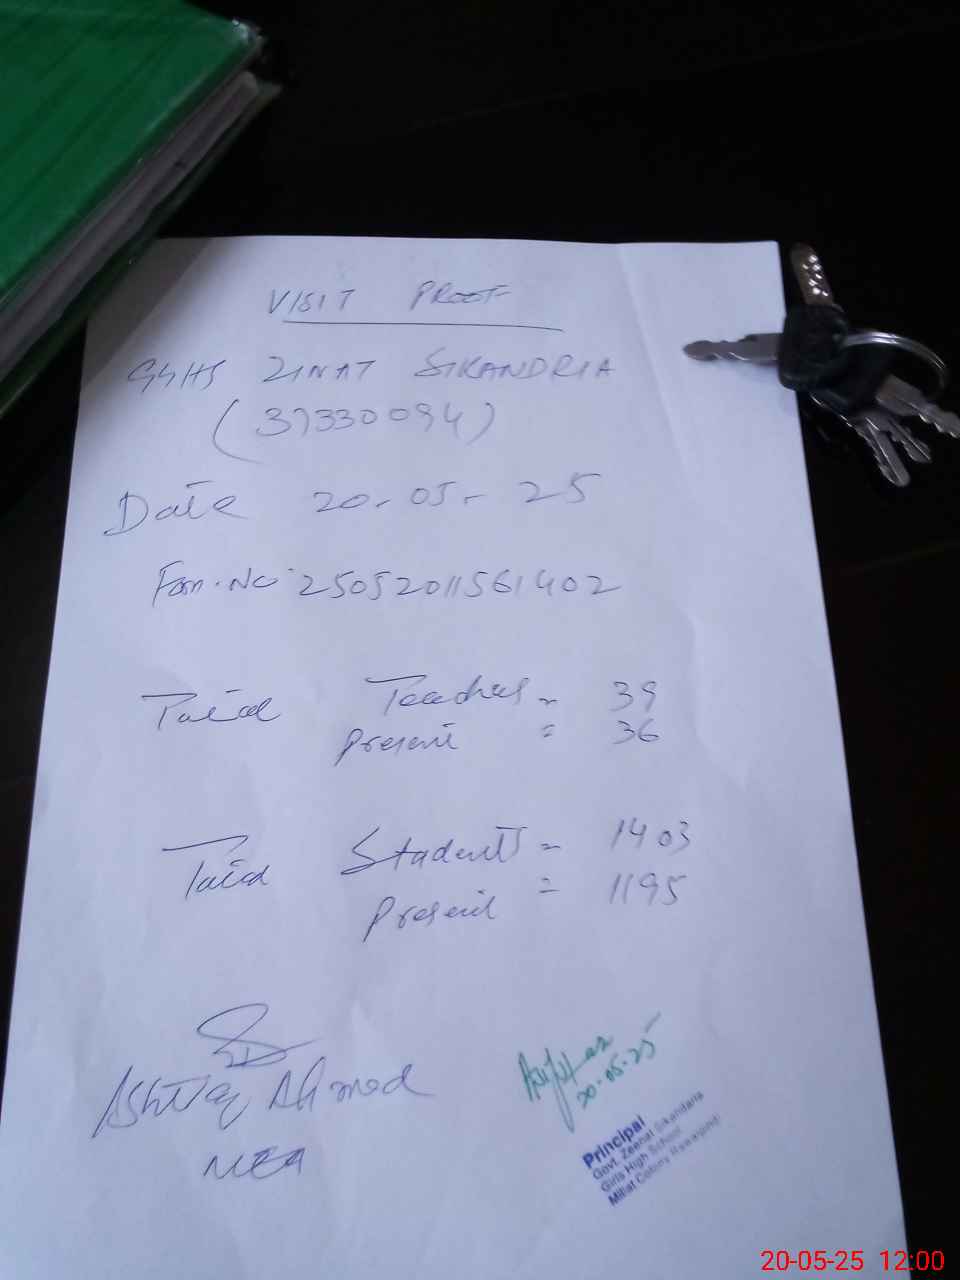 VISIT PROOF
GGHS ZINAT SIKANDRIA
(37330094)
Date 20-05-25
Form.No 25052011561402
Total Teachers = 39
Present = 36
Total Students = 1403
Present = 1195
Ashtiaq Ahmed
MEA
20-05-25
Principal
Govt. Zeenat Sikandaria
Girls High School
Millat Colony Rawalpindi
20-05-25 12:00